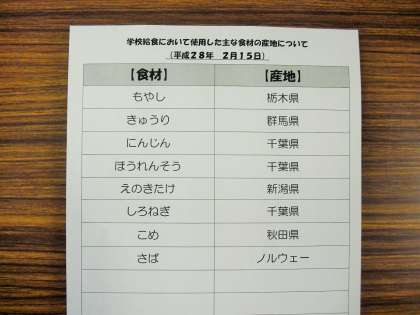 学校給食において使用した主な食材の産地について
（平成２８年　２月１５日）
【食材】 【産地】
もやし 栃木県
きゅうり 群馬県
にんじん 千葉県
ほうれんそう 千葉県
えのきたけ 新潟県
しろねぎ 千葉県
こめ 秋田県
さば ノルウェー